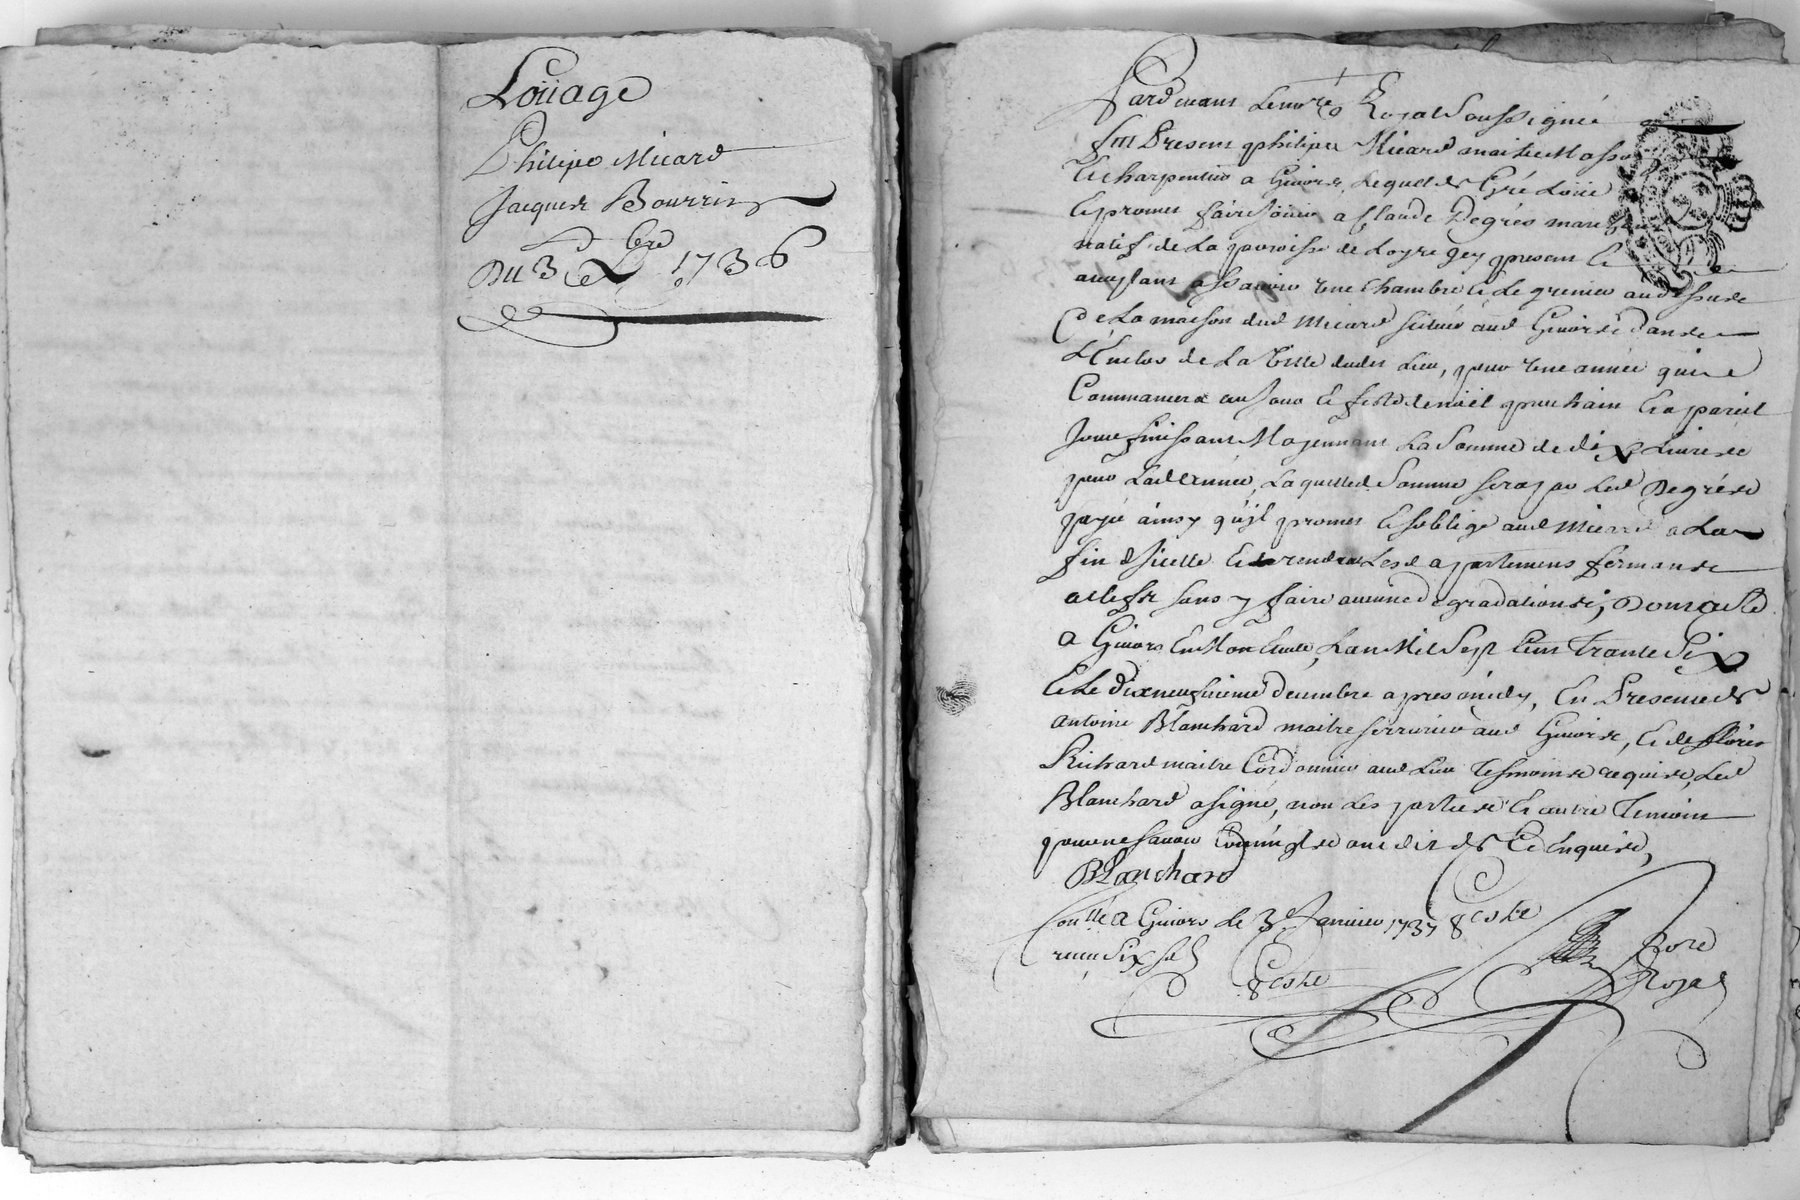 Loüage
Philipe Micard
Jacques Bourrin
Du 3e xbre 1736
Pardevant Le no.re Royal Soussigné
fut Present philipe Micard maitre Masson
Et charpentier a Givors, Lequel de Gré Loüe
Et promet faire Joüir a Claude Degrés
natif de La paroisse de Loyre y present Et
acceptant assavoir une chambre Et Le grenier au dessus
de La maison dud Micard scituée aud Givors dans
L'Enclos de La Ville dudit Lieu, pour une année qui
Commancera au Jour Et feste de noël prochain Et a pareil
Jour finissant Moyennant La Somme de dix Livres
pour Lad Année, Laquelle Somme sera par Led Degrés
payé ainsy qu'jl promet Et soblige aud Micard a La
fin d'jcelle Et rendra Lesd appartemens fermans
a clefs sans y faire aucune degradations, Dont acte
a Givors En Mon Etude, L'an Mil Sept Cent Trante Six
Et Le dixneufvieme decembre apres midy, En Presence de
antoine Blanchard maitre serrurier aud Givors, Et de fleury
Richard maitre Cordonnier aud Lieu Tesmoins requis, Led
Blanchard a signé, non Les parties Et autre Temoin
pour ne savoir comm'jls ont dit de Ce Enquis,
Blanchard
Con.llé a Givors le 3e Janvier 1737 Coste
receu six sols
Coste
no.re
Royal